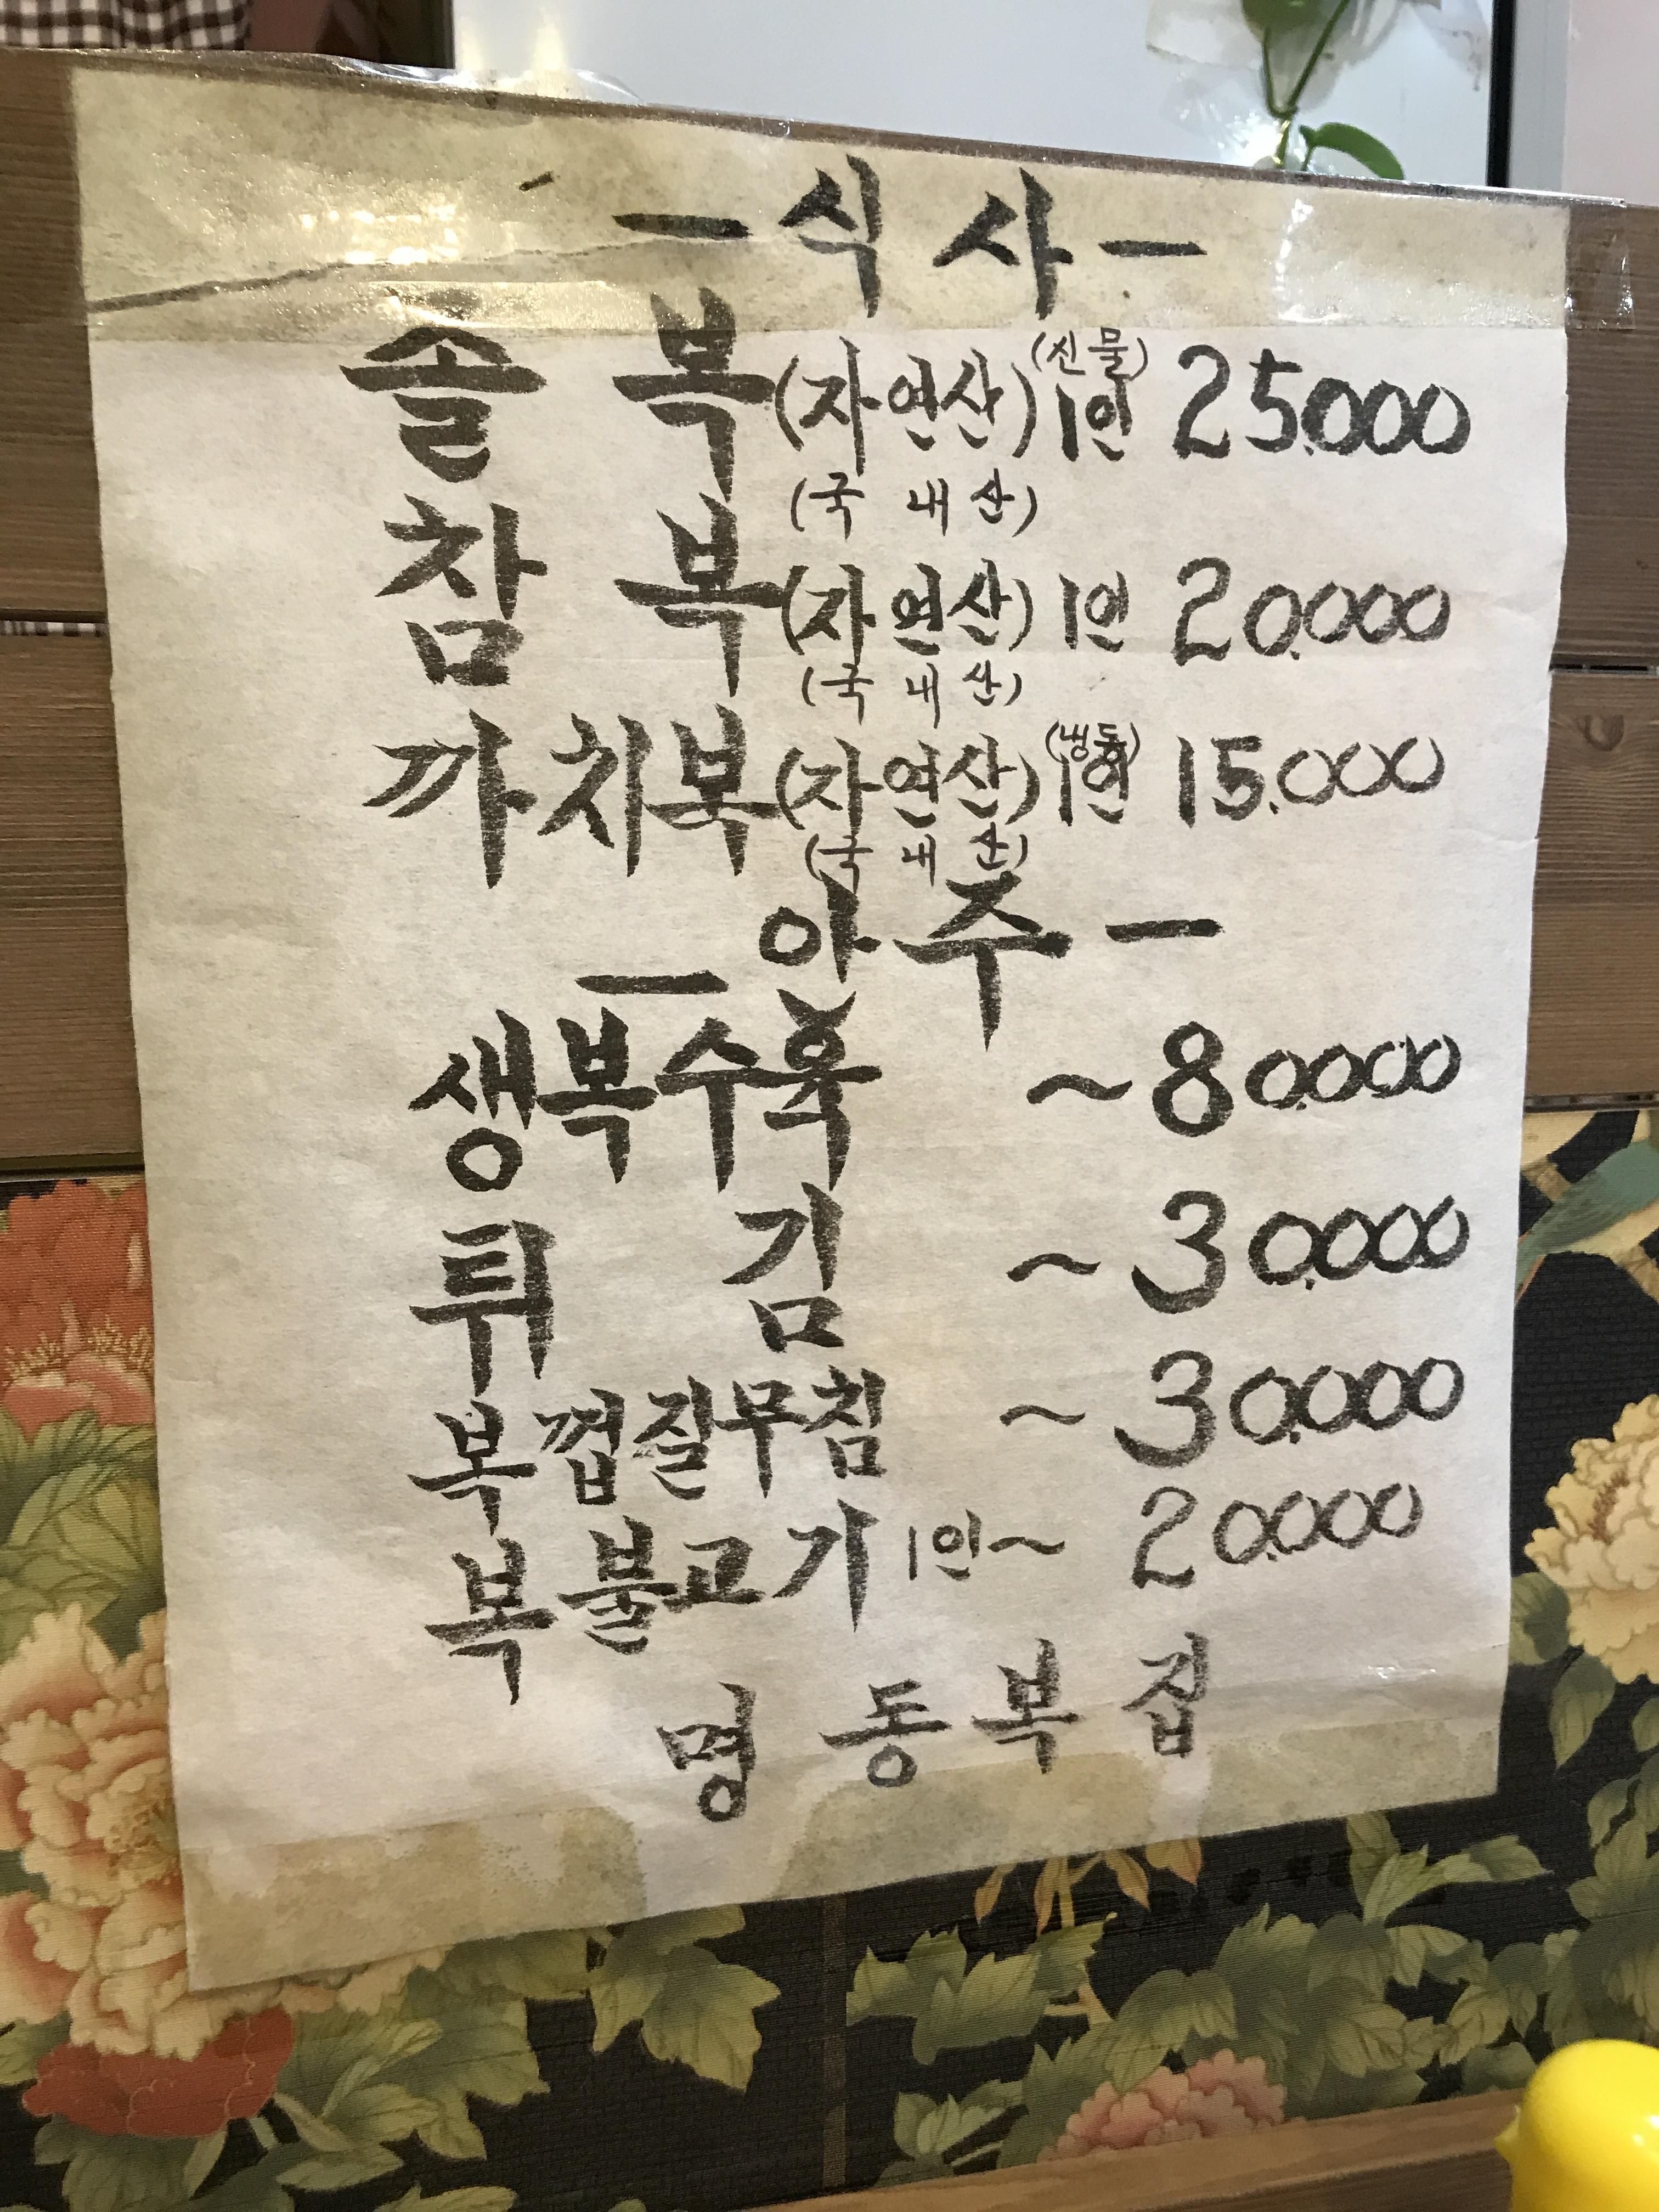 - 식 사 -
졸 복 (자연산) (신물) 1인 25.000
(국 내 산)
참 복 (자연산) 1인 20.000
(국 내 산)
까치복 (자연산) (냉동) 1인 15.000
(국 내 산)
- 안 주 -
생복수육 ~ 80.000
튀 김 ~ 30.000
복껍질무침 ~ 30.000
복불고기 1인~ 20.000
명 동 복 집